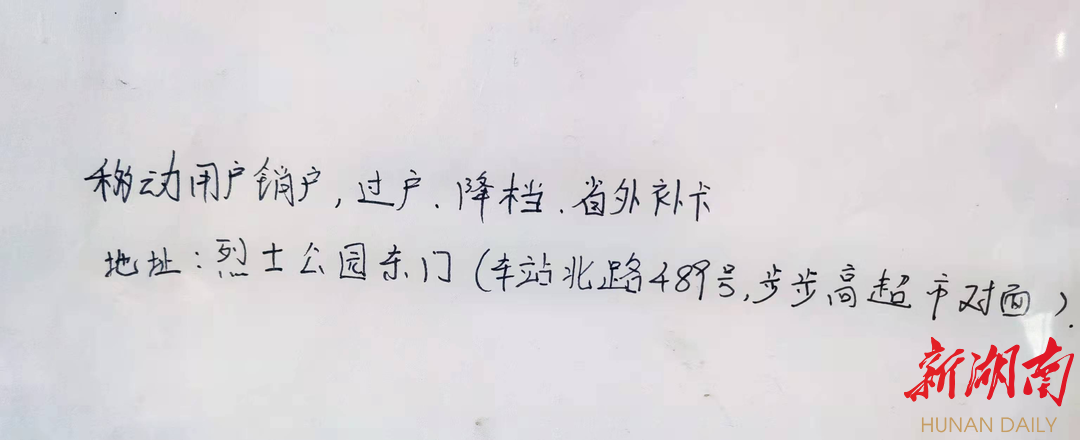 移动用户销户,过户.降档.省外补卡
地址:烈士公园东门(车站北路489号,步步高超市对面).
新湖南
HUNAN DAILY